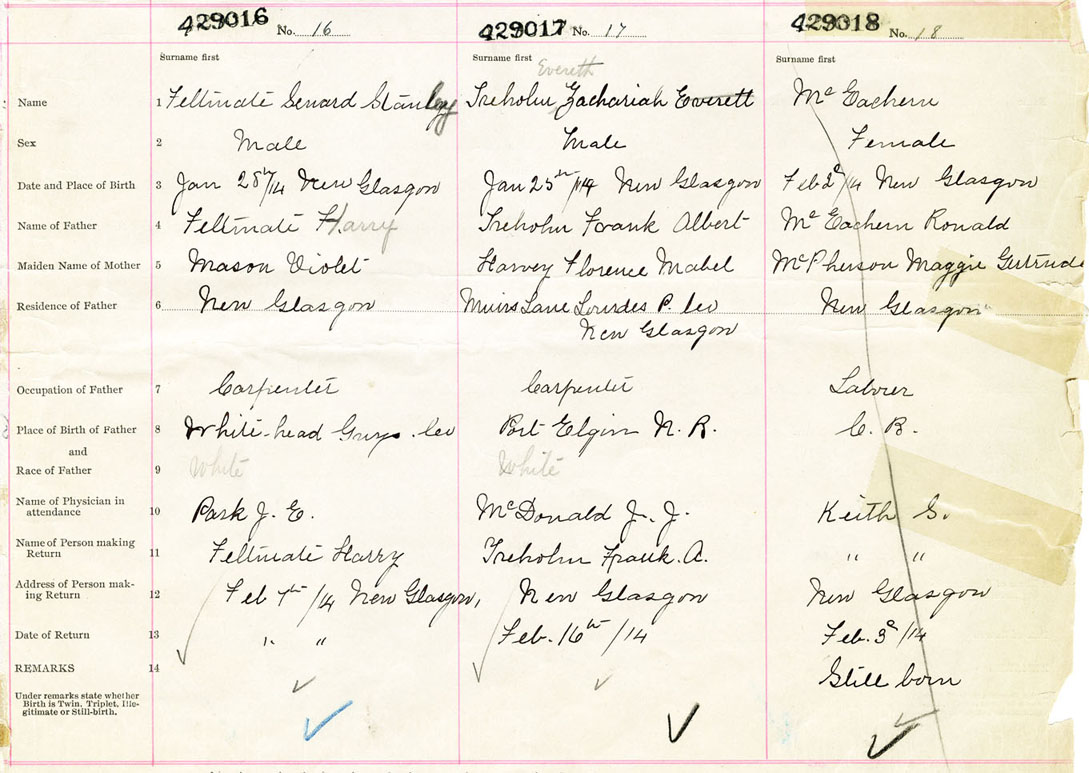 429016 No. 16 429017 No. 17 429018 No. 18
Surname first Surname first Surname first
Evereth
Name 1 Feltmate Senard Stanley Treholm Zachariah Everett McEachern
Sex 2 Male Male Female
Date and Place of Birth 3 Jan 28th/14 New Glasgow Jan 25th/14 New Glasgow Feb 2d/14 New Glasgow
Name of Father 4 Feltmate Harry Treholm Frank Albert McEachern Ronald
Maiden Name of Mother 5 Mason Violet Harvey Florence Mabel McPherson Maggie Gertrude
Residence of Father 6 New Glasgow Muirs Lane Lourdes P. Co New Glasgow
New Glasgow
Occupation of Father 7 Carpenter Carpenter Labourer
Place of Birth of Father 8 White-head Guys. Co Port Elgin N. B. C. B.
and
Race of Father 9 White White
Name of Physician in
attendance 10 Park J. E. McDonald J. J. Keith S.
Name of Person making
Return 11 Feltmate Harry Treholm Frank. A. " "
Address of Person mak-
ing Return 12 Feb 7th/14 New Glasgow, New Glasgow New Glasgow
Date of Return 13 " " Feb. 16th/14 Feb. 3d/14
REMARKS 14 Still born
Under remarks state whether
Birth is Twin, Triplet, Ille-
gitimate or Still-birth.